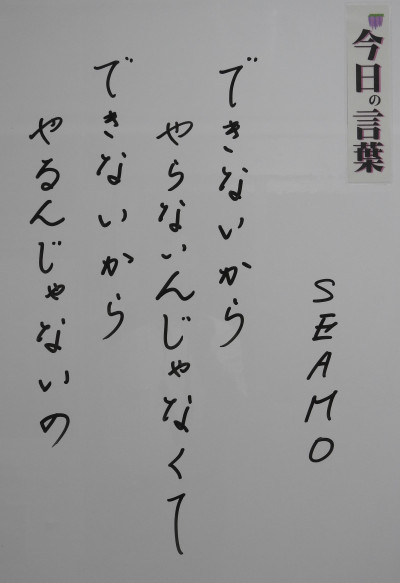 今日の言葉
SEAMO
できないから
やらないんじゃなくて
できないから
やるんじゃないの